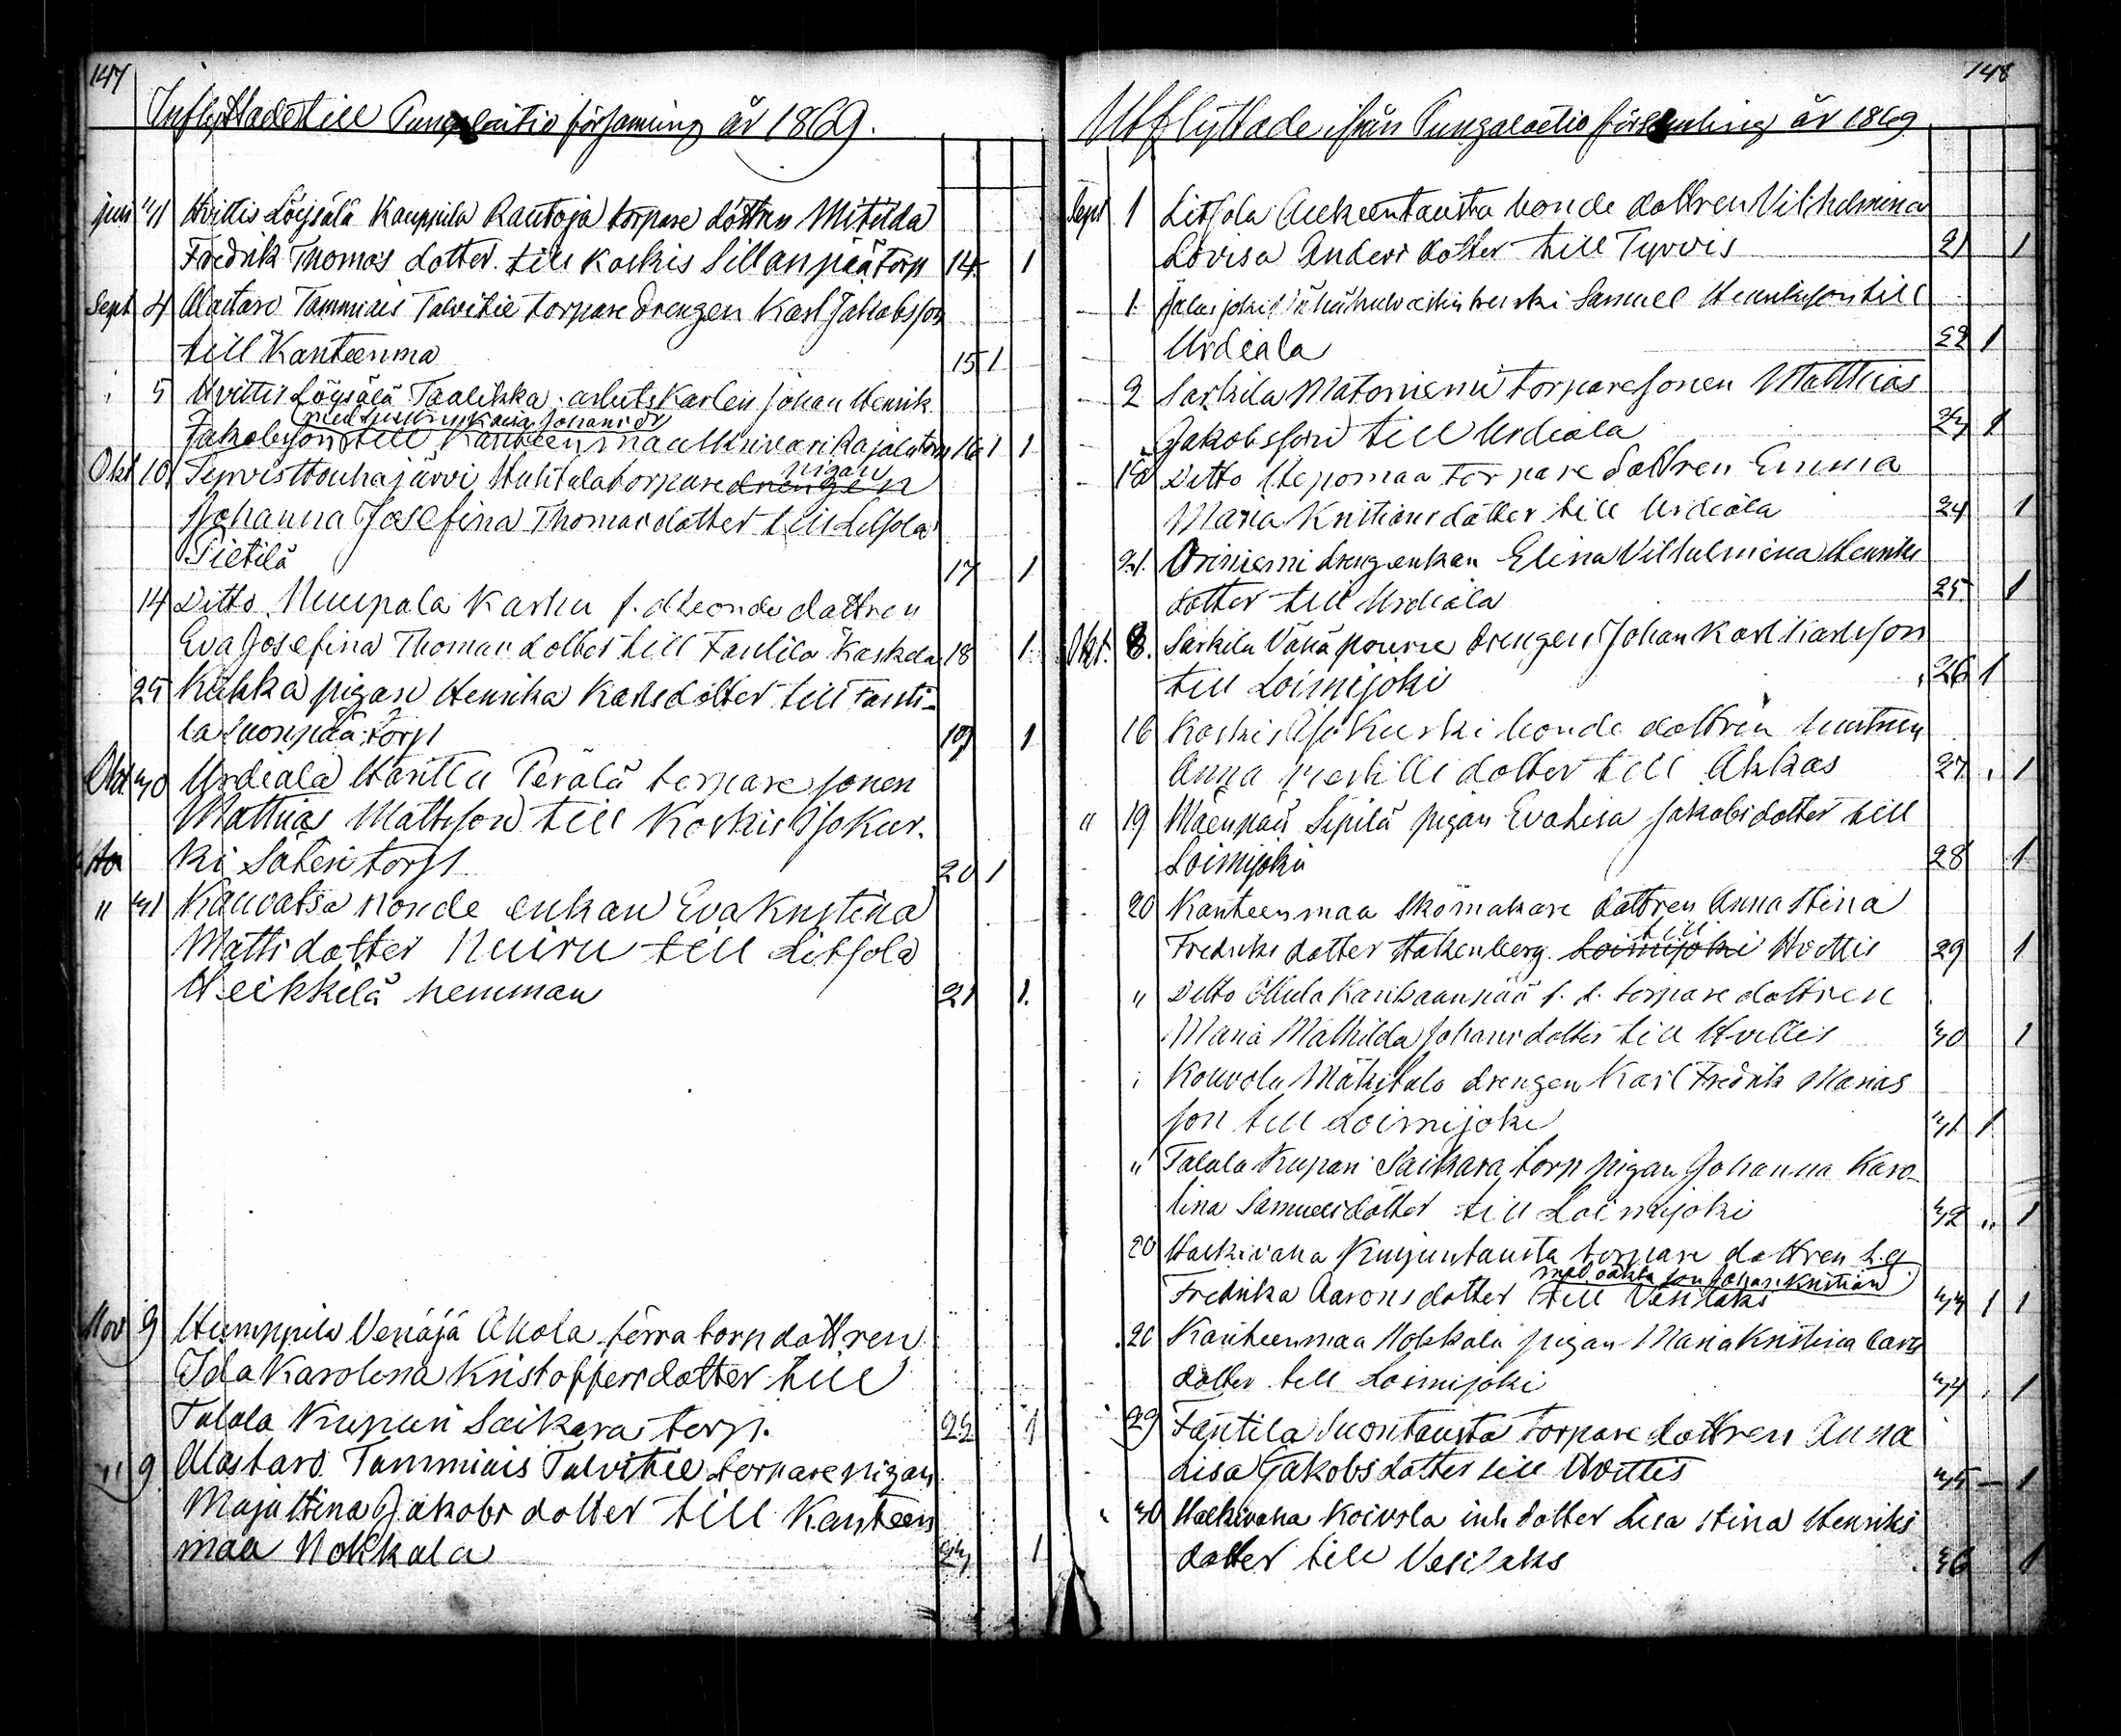 147
Inflyttade till Pungalaitio församing år 1869.
juni 11 Hvittis Löysälä Kauppila Rautoja torpare dottren Mitilda
Fredrik Thomas dotter till Koskis Sillanpää torp 14 1
Sept 4 Alastaro Tammiais Talvitie torpare drengen Karl Jakobsson
till Kanteenma 15 1
5 Hvittis Löysälä Taalikka arbets Karlen Johan Henrik
med hustru Kaisa Johansdr
Jakobsson till Kanteenmaa torp 16 1 1
Okt 10 Tyrvis Houhajärvi Huhtala torpare drengen pigan
Johanna Josefina Thomasdotter till Litsola
Pietilä 17 1
14 Ditto Nuupala Karhu f. d. bonde dottren
Eva Josefina Thomasdotter till Fantila Kaskela 18 1
25 Kukka pigan Henrika Karlsdotter till Fanti-
la Suonpää torp 19 1
Okt 30 Urdiala Honttu Perälä torpare sonen
Mattias Mattsson till Koskis Ojakur-
ki Säteri torp 20 1
" 31 Kauvatsa bonde enkan Eva Kristina
Matts dotter Nuiru till Litsola
Heikkilä hemman 21 1
Nov 9 Humppila Venäjä Akola torp dottren
Ida Karolina Kristoffersdotter till
Talala Kupari Saikara torp. 22 1
" 9 Alastaro Tammiais Talvitie torpare pigan
Maja Stina Jakobs dotter till Kanteen
maa Nokkala 23 1
148
Utflyttade ifrån Pungalaitio församling år 1869
Sept 1 Litsola bonde dottren Vilhelmina
Lovisa Anders dotter till Tyrvis 21 1
1 Samuel Henriksson till
Urdiala 22 1
2 Sarkila Matoniemi torpare sonen Matthias
Jakobsson till Urdiala 23 1
Ditto Hepomaa torpare dottren Emma
Maria Kristians dotter till Urdiala 24 1
21 Oriniemi drengenkan Elina Vilhelmina Henriks
dotter till Urdiala 25 1
Okt. 8. Sarkila Vähäpouru drengen Johan Karl Karlsson
till Loimijoki 26 1
16 Koskis Ojakurki bonde dottren hustrun
Anna dotter till Akkas 27 1
" 19 Mäenpää Sipilä pigan Eva Lisa Jakobsdotter till
Loimijoki 28 1
20 Kanteenmaa skomakare dottren Anna Stina
Fredriks dotter Hakenberg. Loimijoki till Hvittis 29 1
" Ditto f. d. torpare dottren
Maria Mathilda Johansdotter till Hvittis 30 1
Kouvola Mäkitalo drengen Karl Fredrik Marias
son till Loimijoki 31 1
" Talala Kupari Saikara torp pigan Johanna Karo-
lina Samuelsdotter till Loimijoki 32 " 1
20 Haikivaha Kujuntausta torpare dottren
Fredrika Aarons dotter till Vesilaks 33 1 1
med oäkta son Johan Kristian
20 Kanteenmaa Nokkala pigan Maria Kristina Carls
dotter till Loimijoki 34 1
29 Fantila Suontausta torpare dottren Anna
Lisa Jakobs dotter till Hvittis 35 – 1
" 30 Haikivaha Koivola inh dotter Lisa Stina Henriks
dotter till Vesilaks 36 1